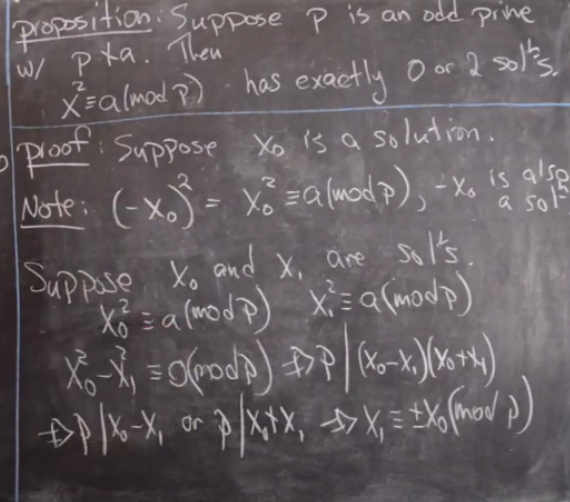 proposition: Suppose p is an odd prime
w/ p∤a. Then
x² ≡ a (mod p) has exactly 0 or 2 sol'ts.
proof: Suppose x₀ is a solution.
Note: (-x₀)² = x₀² ≡ a (mod p), -x₀ is also
a sol't
Suppose x₀ and x₁ are sol'ts.
x₀² ≡ a (mod p) x₁² ≡ a (mod p)
x₀² - x₁² ≡ 0 (mod p) ⇒ p | (x₀-x₁)(x₀+x₁)
⇒ p | x₀-x₁ or p | x₀+x₁ ⇒ x₁ ≡ ±x₀ (mod p)